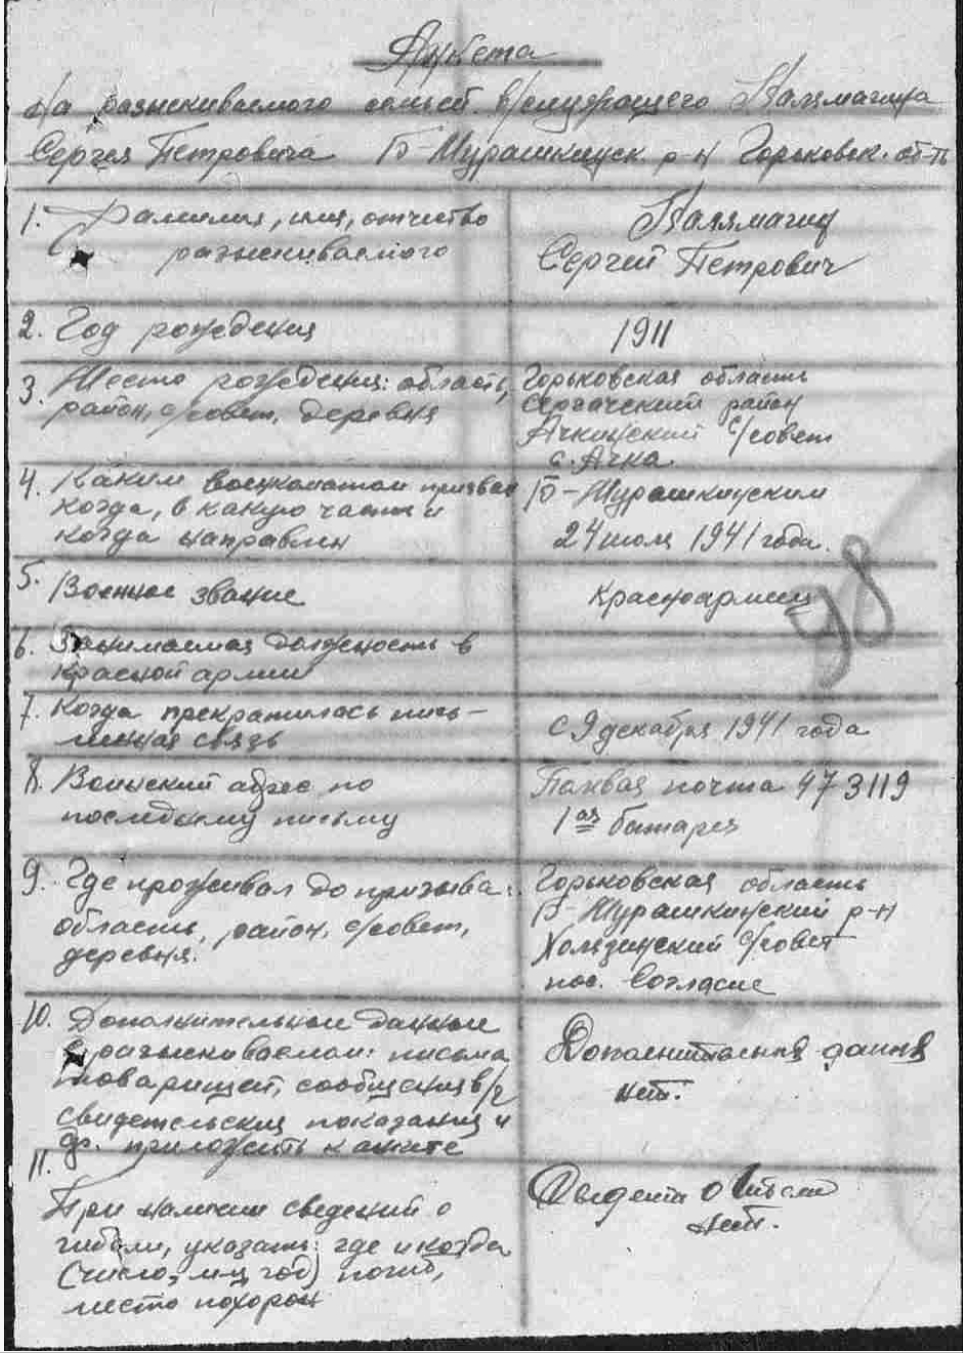 Анкета
На разыскиваемого семьей в/служащего Калямагина
Сергея Петровича Б-Мурашкинск. р-н Горьковск. об-ть
1. Фамилия, имя, отчество
разыскиваемого
Калямагин
Сергей Петрович
2. Год рождения
1911
3. Место рождения: область,
район, с/совет, деревня
Горьковская область
Сергачский район
Ачкинский с/совет
с. Ачка.
4. Каким военкоматом призван
когда, в какую часть и
когда направлен
Б-Мурашкинским
24 июля 1941 года.
5. Военное звание
Красноармеец
98
6. Занимаемая должность в
красной армии
7. Когда прекратилась пись-
менная связь
с 9 декабря 1941 года
8. Воинский адрес по
последнему письму
почта 473119
1ая батарея
9. Где проживал до призыва:
область, район, с/совет,
деревня.
Горьковская область
Б-Мурашкинский р-н
Холязинский с/совет
пос. Согласие
10. Дополнительные данные
о разыскиваемом: письма
товарищей, сообщения в/ч
свидетельския показания и
др. приложить к анкете
Дополнительная даная
нет.
11.
При наличии сведений о
гибели, указать: где и когда
(число, м-ц, год) погиб,
место похорон
о
нет.